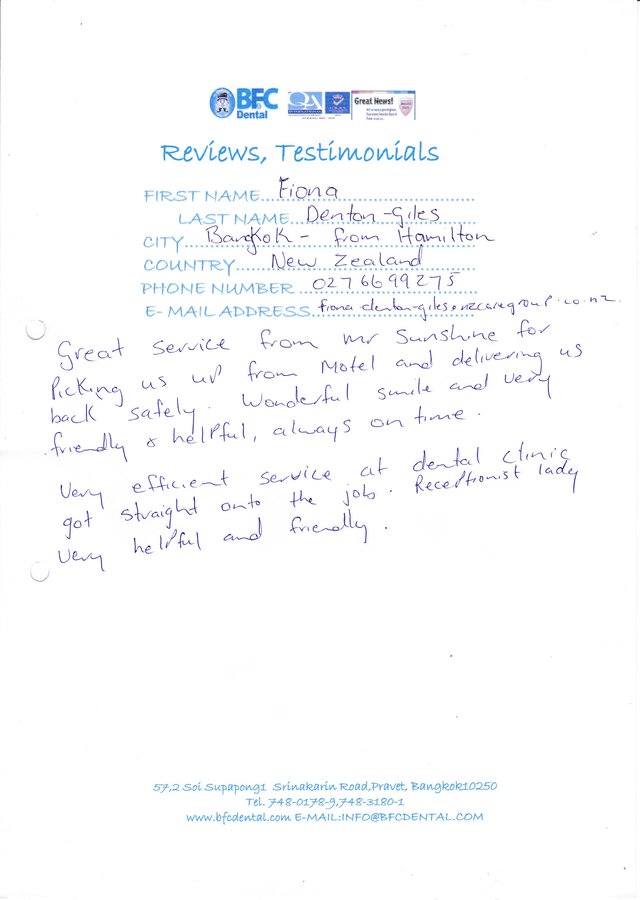 BFC
Dental
QA
INTERNATIONAL
Great News!
Reviews, Testimonials
FIRST NAME...Fiona
LAST NAME...Denton-Giles
CITY...Bangkok - from Hamilton
COUNTRY...New Zealand
PHONE NUMBER...0276699275
E-MAIL ADDRESS...fiona.denton-giles@nzcaregroup.co.nz
Great service from mr Sunshine for
Picking us up from Motel and delivering us
back safely. Wonderful smile and very
friendly & helpful, always on time.
Very efficient service at dental clinic
got straight onto the job. Receptionist lady
very helpful and friendly.
57,2 Soi Supapong1 Srinakarin Road,Pravet, Bangkok10250
Tel. 748-0178-9,748-3180-1
www.bfcdental.com E-MAIL:INFO@BFCDENTAL.COM